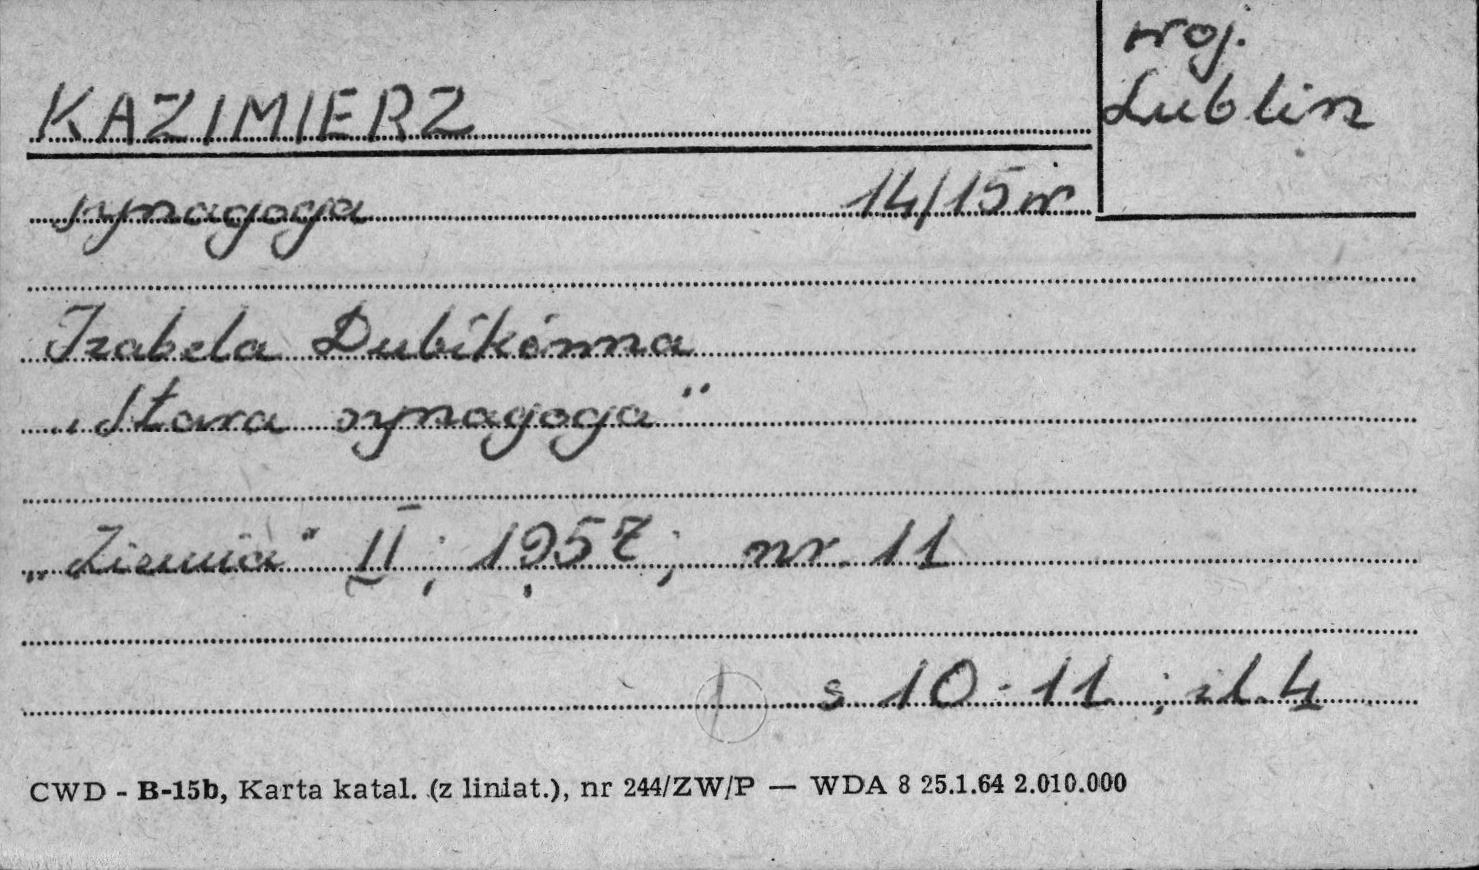 KAZIMIERZ
woj.
Lublin
synagoga 14/15 w.
Izabela Dubikówna
„Stara synagoga"
„Ziemia" II; 1957; nr. 11
s 10-11; il. 4
CWD - B-15b, Karta katal. (z liniat.), nr 244/ZW/P — WDA 8 25.1.64 2.010.000